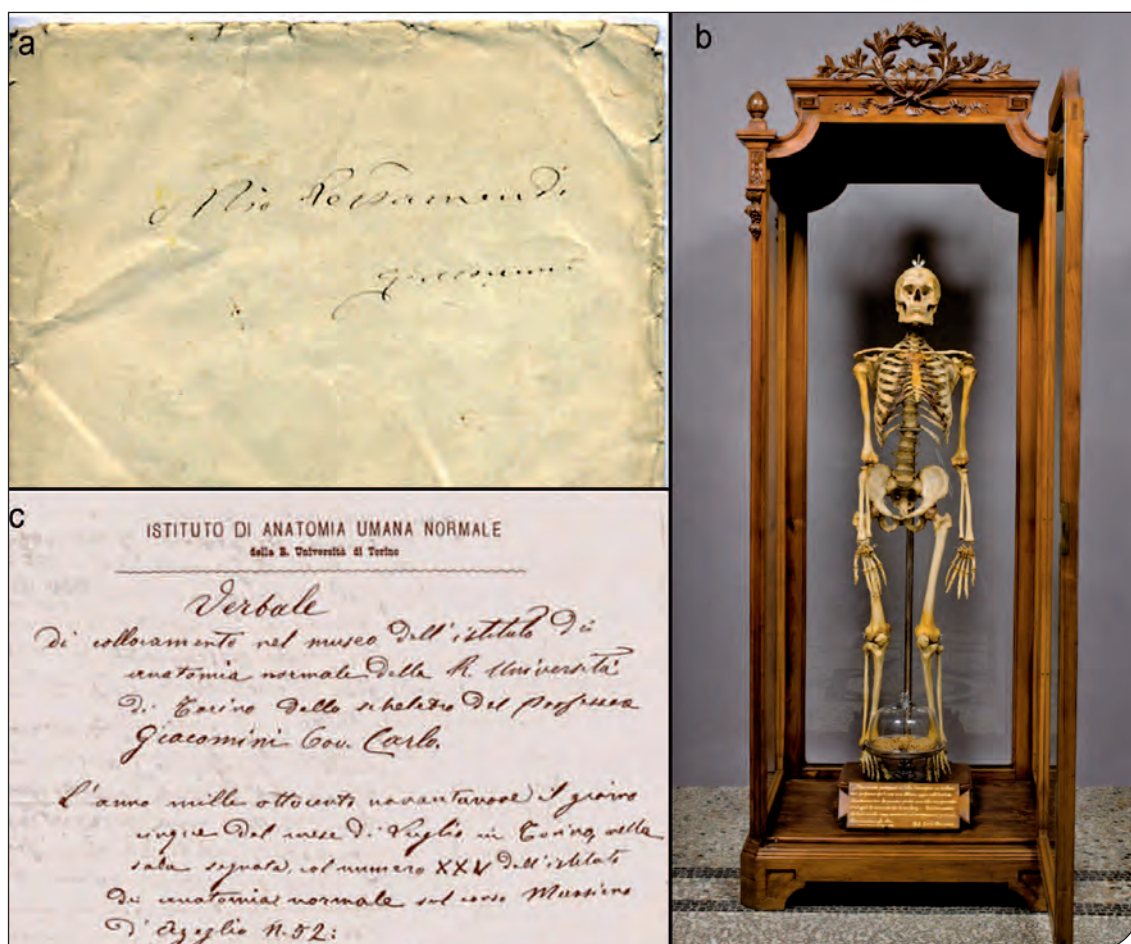 a
Mio Testamento
Giacomini
b
c
ISTITUTO DI ANATOMIA UMANA NORMALE
della R. Università di Torino
Verbale
di collocamento nel museo dell'istituto di
anatomia normale della R. Università
di Torino dello scheletro del professore
Giacomini Cav. Carlo.
L'anno mille ottocento novantanove il giorno
cinque del mese di Luglio in Torino, nella
sala segnata, col numero XXV dell'istituto
di anatomia normale sul corso Massimo
d'Azeglio N. 52: